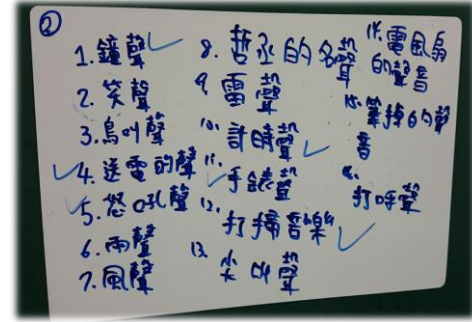 ②
1. 鐘聲
2. 笑聲
3. 鳥叫聲
4. 送電的聲
5. 怒吼聲
6. 雨聲
7. 風聲
8. 哲丞的名聲
9. 雷聲
10. 計時聲
11. 手錶聲
12. 打掃音樂
13. 尖叫聲
14. 電風扇
的聲音
15. 筆掉的聲
音
打呼聲